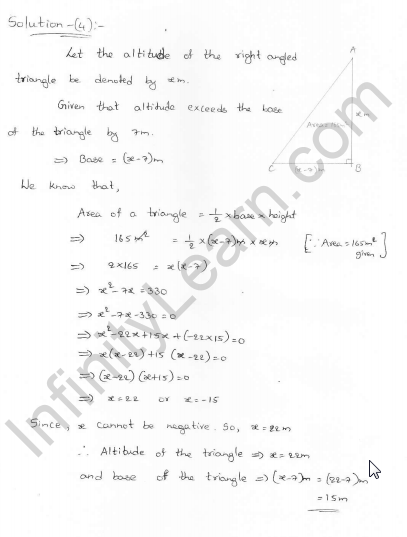 Solution-(4):-
Let the altitude of the right angled
triangle be denoted by xm.
Given that altitude exceeds the base
of the triangle by 7m.
⇒ Base = (x-7)m
A
xm
C (x-7)m B
We know that,
Area of a triangle = 1/2 × base × height
⇒ 165m² = 1/2 × (x-7)m × xm [∵ Area = 165m² given]
⇒ 2×165 = x(x-7)
⇒ x²-7x = 330
⇒ x²-7x-330 = 0
⇒ x²-22x+15x+(-22×15) = 0
⇒ x(x-22)+15(x-22) = 0
⇒ (x-22)(x+15) = 0
⇒ x = 22 or x = -15
Since, x cannot be negative. So, x = 22m
∴ Altitude of the triangle ⇒ x = 22m
and base of the triangle ⇒ (x-7)m = (22-7)m
= 15m
InfinityLearn.com